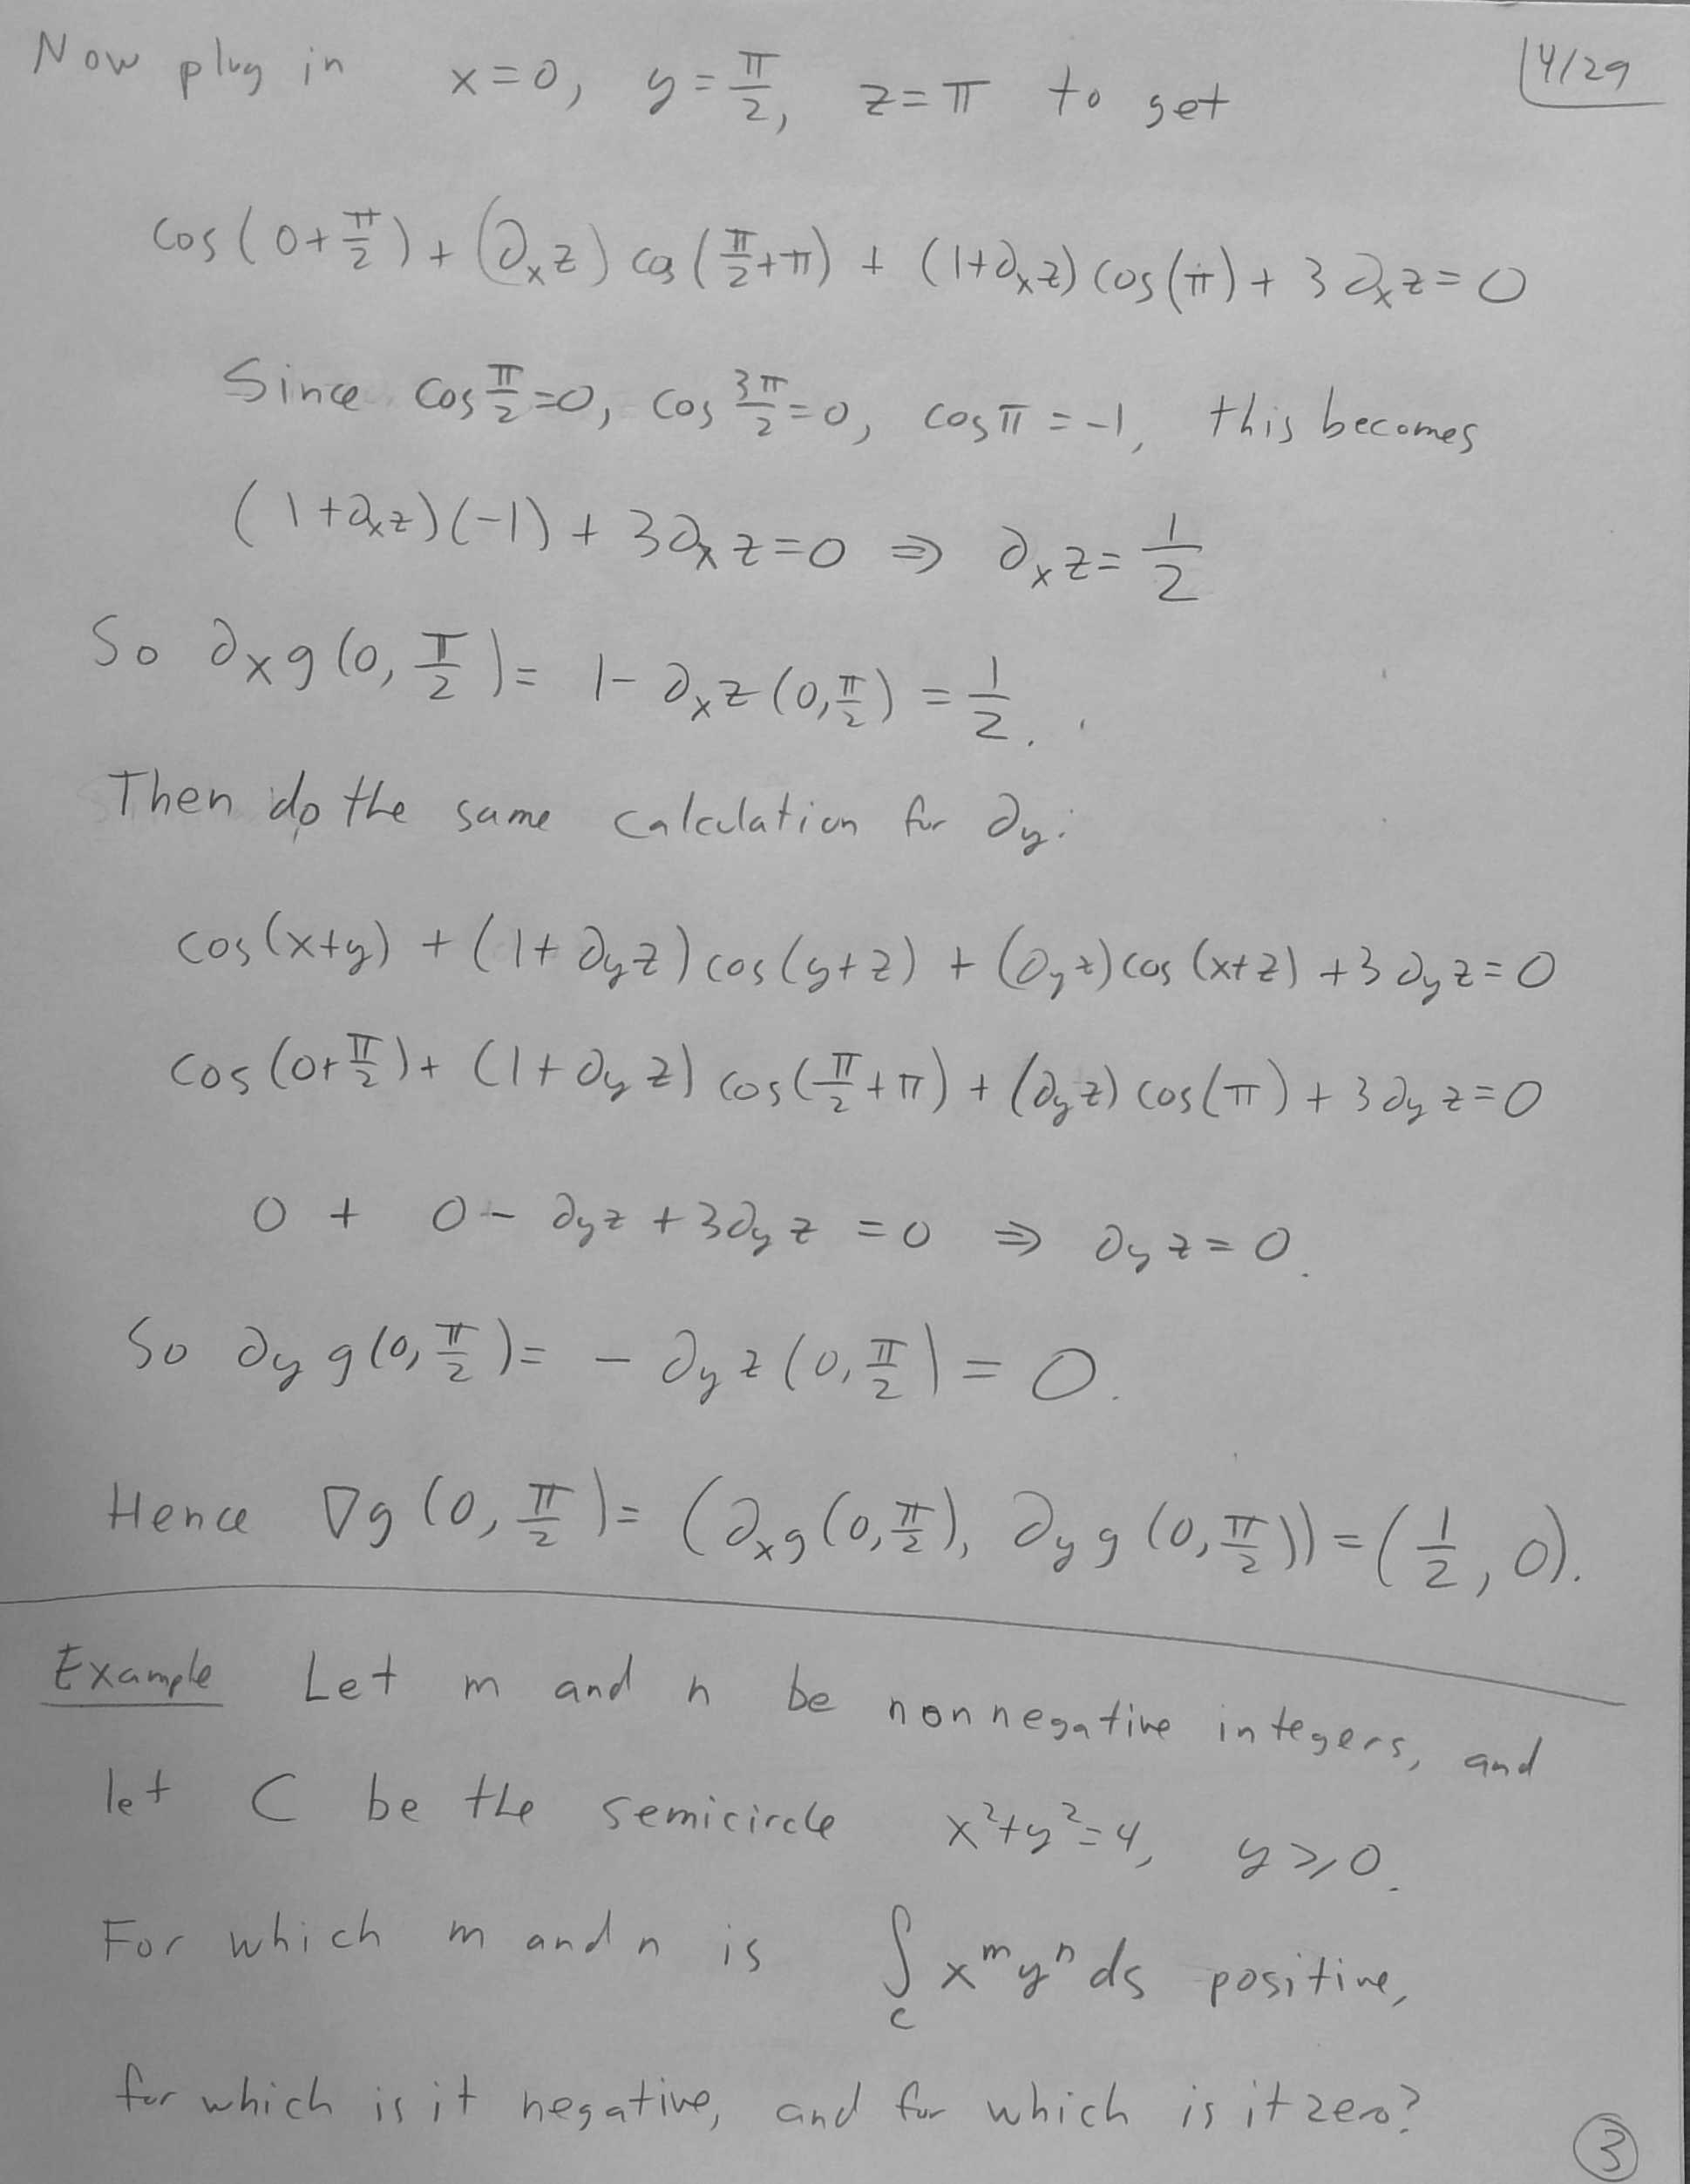 Now plug in x=0, y=π/2, z=π to get
4/29
cos(0+π/2)+(∂ₓz)cos(π/2+π)+(1+∂ₓz)cos(π)+3∂ₓz=0
Since cos π/2=0, cos 3π/2=0, cosπ=-1, this becomes
(1+∂ₓz)(-1)+3∂ₓz=0 ⇒ ∂ₓz=1/2
So ∂ₓg(0,π/2)=1-∂ₓz(0,π/2)=1/2.
Then do the same calculation for ∂y:
cos(x+y)+(1+∂yz)cos(y+z)+(∂yz)cos(x+z)+3∂yz=0
cos(0+π/2)+(1+∂yz)cos(π/2+π)+(∂yz)cos(π)+3∂yz=0
0+0-∂yz+3∂yz=0 ⇒ ∂yz=0.
So ∂yg(0,π/2)=-∂yz(0,π/2)=0.
Hence ∇g(0,π/2)=(∂ₓg(0,π/2), ∂yg(0,π/2))=(1/2,0).
Example Let m and n be nonnegative integers, and
let C be the semicircle x²+y²=4, y≥0.
For which m and n is ∫_C xᵐyⁿds positive,
for which is it negative, and for which is it zero?
3